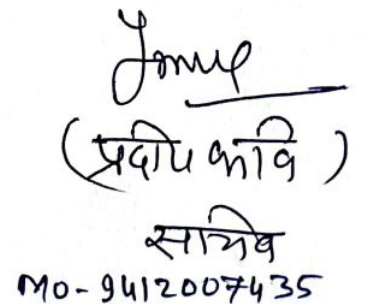 (प्रदीप कवि)
सचिव
MO-9412007435